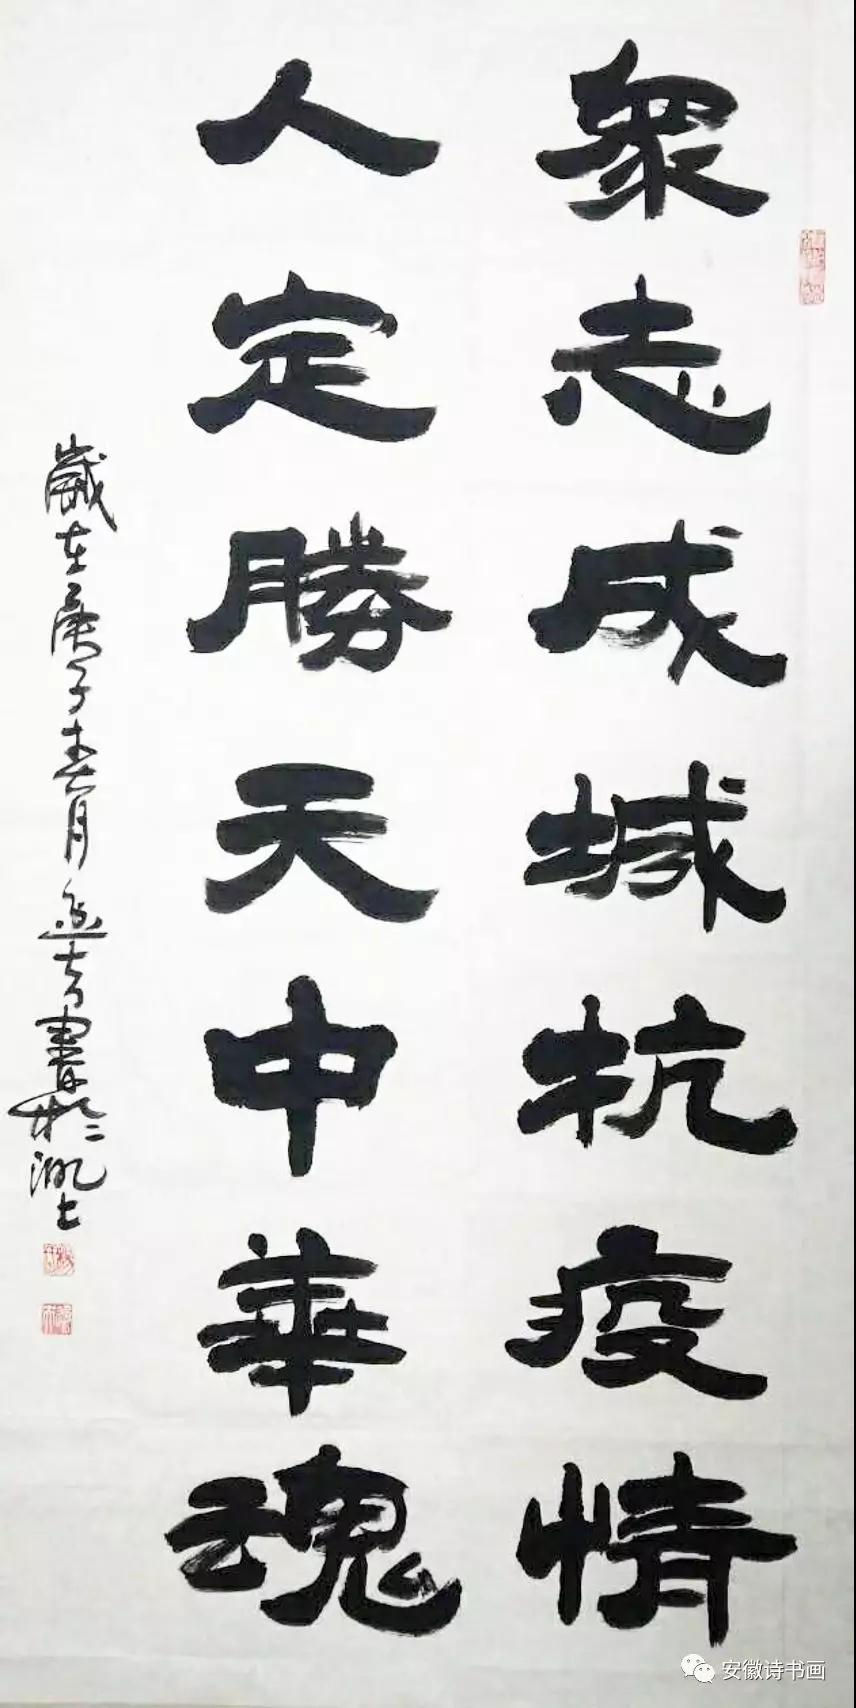 眾志成城抗疫情
人定勝天中華魂
歲在庚子春月
書於
安徽诗书画